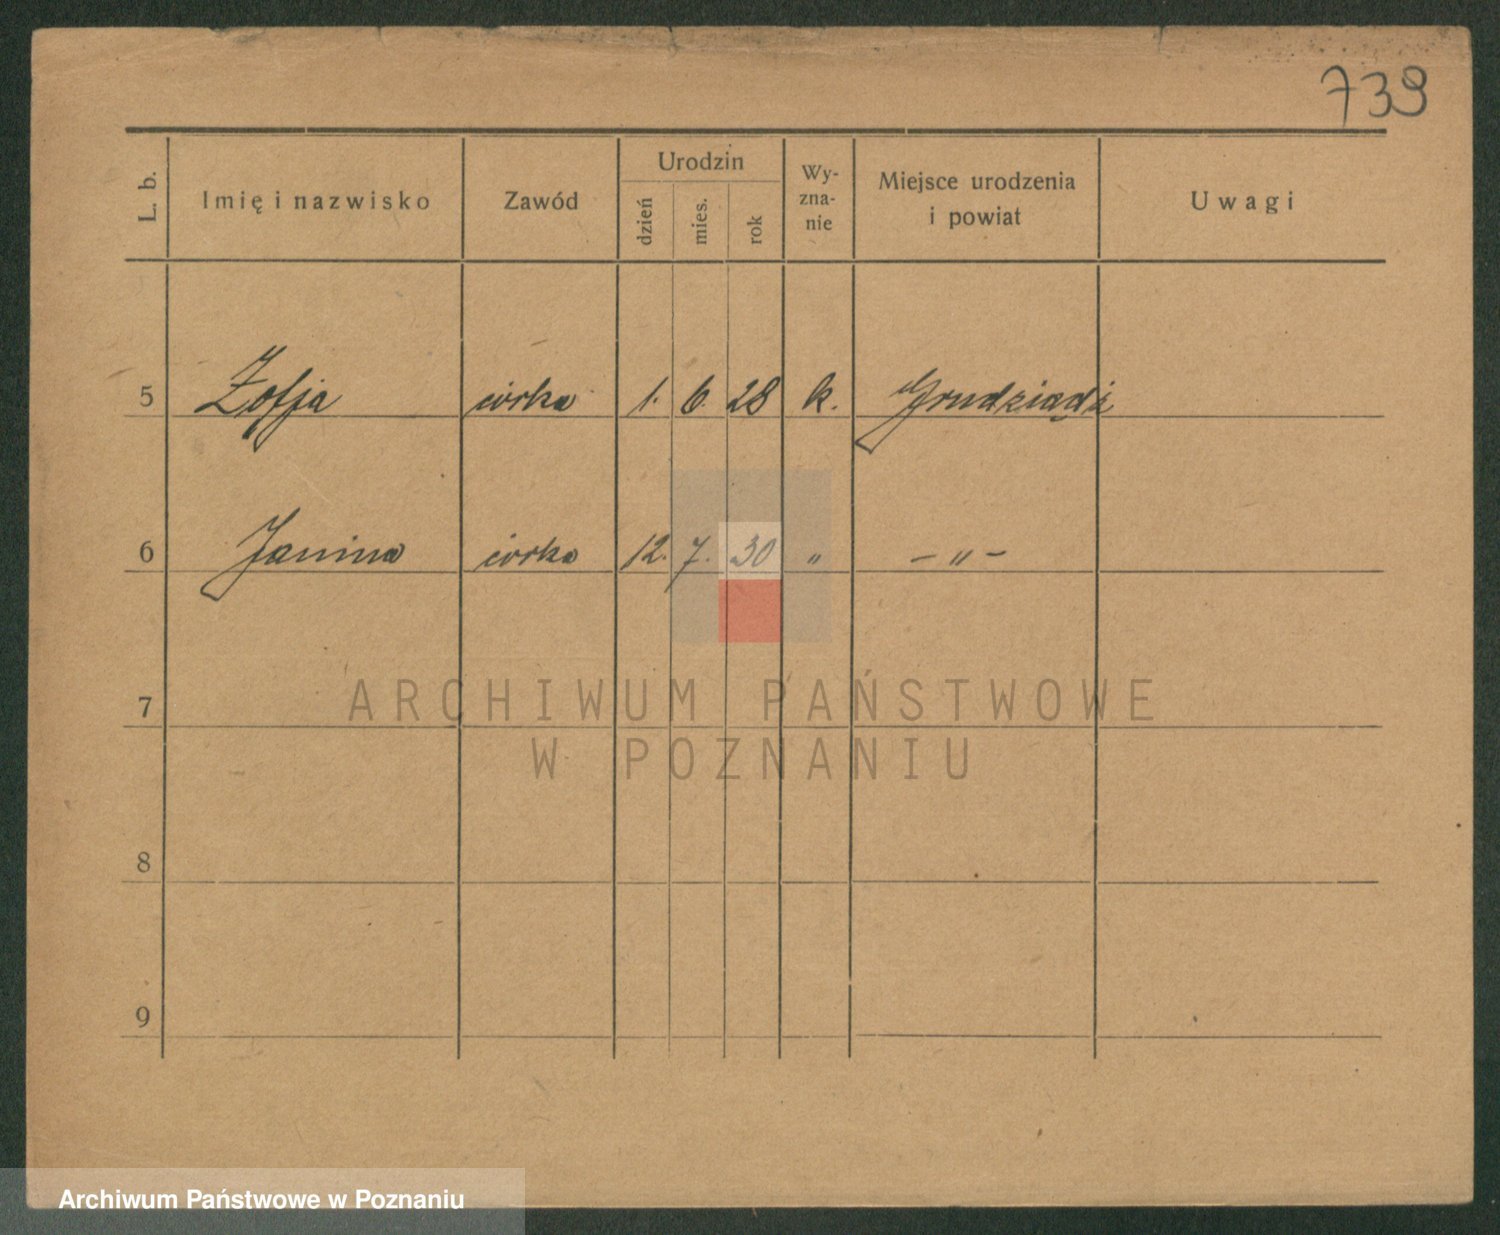 739
L. b. Imię i nazwisko Zawód Urodzin dzień mies. rok Wy-zna-nie Miejsce urodzenia i powiat Uwagi
5 Zofja córka 1. 6. 28 k. Grudziądź
6 Janina córka 12. 7. 30 „ – „ –
7
8
9
ARCHIWUM PAŃSTWOWE
W POZNANIU
Archiwum Państwowe w Poznaniu